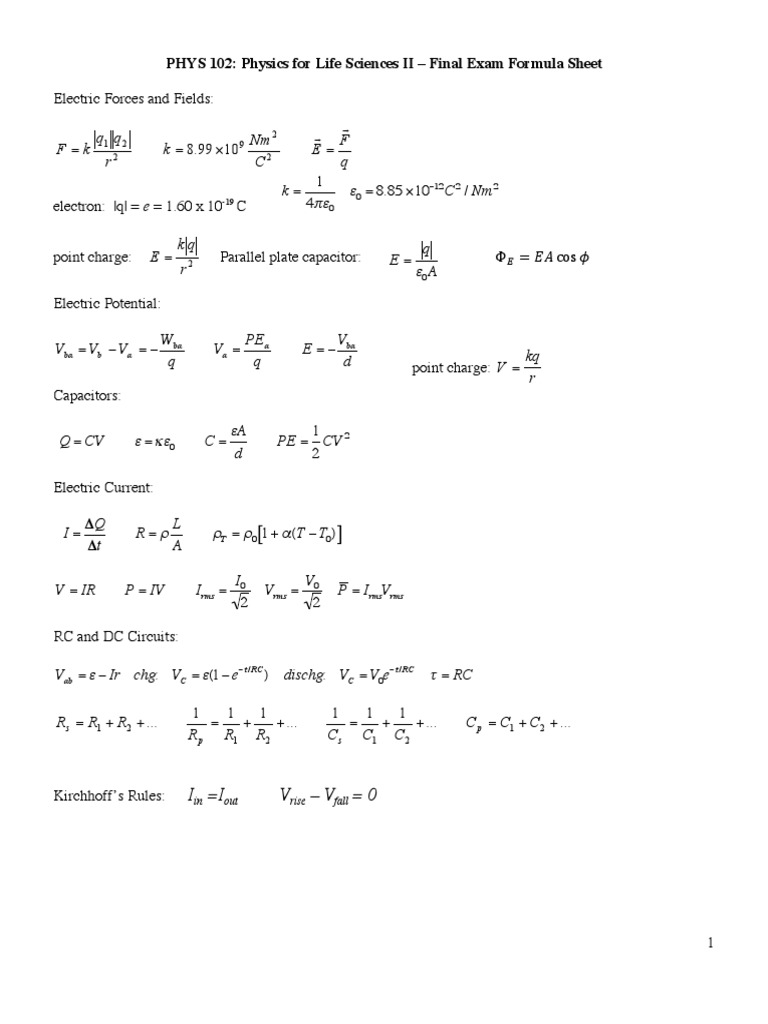 PHYS 102: Physics for Life Sciences II – Final Exam Formula Sheet
Electric Forces and Fields:
F = k |q₁||q₂| / r²   k = 8.99 × 10⁹ Nm² / C²   E⃗ = F⃗ / q
electron: |q| = e = 1.60 x 10⁻¹⁹ C   k = 1 / 4πε₀   ε₀ = 8.85 × 10⁻¹² C² / Nm²
point charge: E = k|q| / r²   Parallel plate capacitor: E = |q| / ε₀A   Φ_E = EA cos ϕ
Electric Potential:
V_ba = V_b − V_a = − W_ba / q   V_a = PE_a / q   E = − V_ba / d   point charge: V = kq / r
Capacitors:
Q = CV   ε = κε₀   C = εA / d   PE = 1/2 CV²
Electric Current:
I = ΔQ / Δt   R = ρ L / A   ρ_T = ρ₀[1 + α(T − T₀)]
V = IR   P = IV   I_rms = I₀ / √2   V_rms = V₀ / √2   P̅ = I_rms V_rms
RC and DC Circuits:
V_ab = ε − Ir   chg: V_C = ε(1 − e^(−t/RC))   dischg: V_C = V₀e^(−t/RC)   τ = RC
R_s = R₁ + R₂ + ...   1/R_p = 1/R₁ + 1/R₂ + ...   1/C_s = 1/C₁ + 1/C₂ + ...   C_p = C₁ + C₂ + ...
Kirchhoff’s Rules:   I_in = I_out   V_rise – V_fall = 0
1